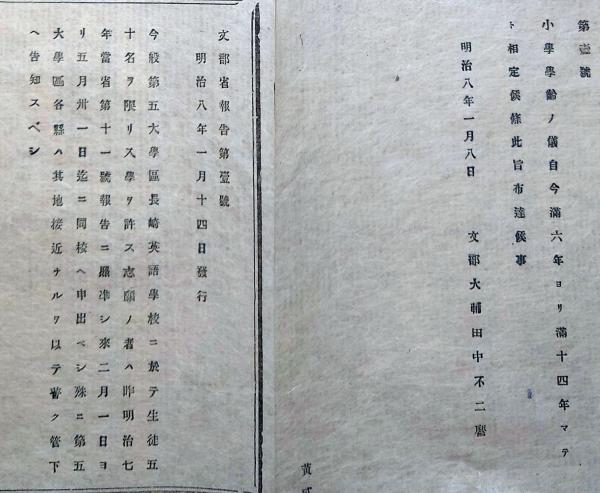 第壹號
小學學齡ノ儀自今滿六年ヨリ滿十四年マテ
ト相定候條此旨布達候事
明治八年一月八日
文部大輔田中不二麿
文部省報告第壹號
明治八年一月十四日發行
今般第五大學區長崎英語學校ニ於テ生徒五
十名ヲ限リ入學ヲ許ス志願ノ者ハ昨明治七
年當省第十一號報告ニ照準シ來二月一日ヨ
リ五月卅一日迄ニ同校ヘ申出ベシ殊ニ第五
大學區各縣ハ其地接近ナルヲ以テ普ク管下
ヘ告知スベシ